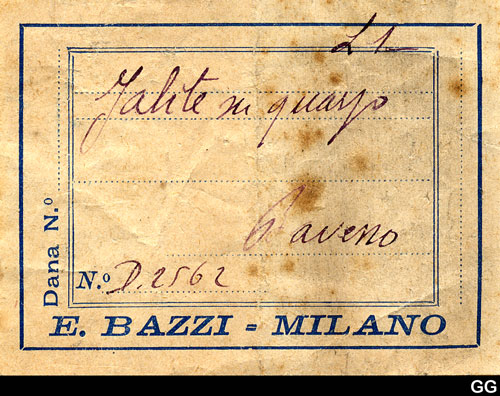 L 1
Jalite su quarzo
Baveno
Dana N.º
N.º D.2562
E. BAZZI - MILANO
GG